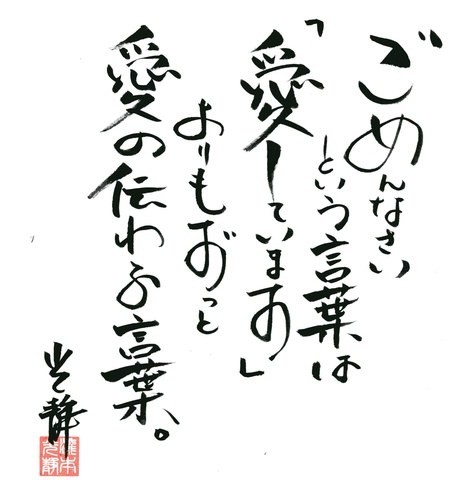 ごめんなさい
という言葉は
「愛しています」
よりもずっと
愛の伝わる言葉。
光静
瀧本
光静